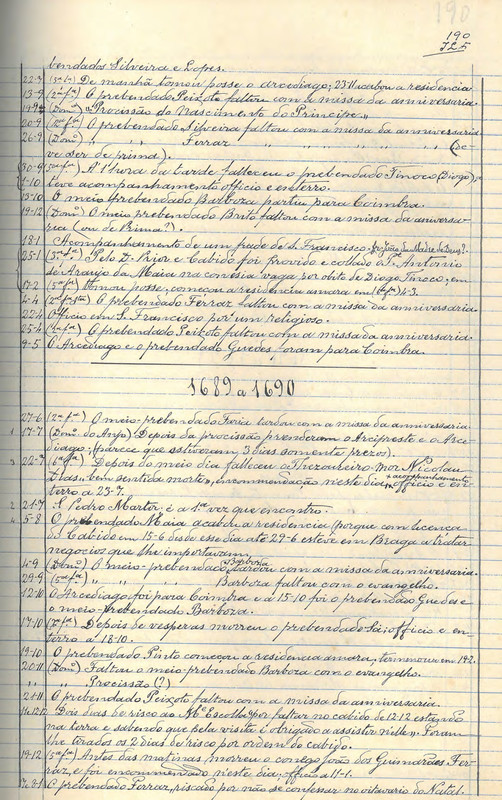 190
190
JL5
bendados Silveira e Lopes.
22-3 De manhã tomou posse o arcediago; 23-11 acabou a residencia
13-9 (2ª fª) O prebendado Peixoto faltou com a missa da anniversaria.
19-9 (Domº) "Procissão do Nascimento do Principe"
20-9 O prebendado Silveira faltou com a missa da anniversaria
26-9 (Domº) " " Ferraz " " " " " (de-
ve ser de prima).
30-9 A 1 hora da tarde falleceu o prebendado Tinoco (Diogo);
1-10 teve acompanhamento officio e enterro.
15-10 O meio prebendado Barboza partiu para Coimbra.
19-12 (Domº) O meio prebendado Brito faltou com a missa da aniversa-
ria (ou de Prima?).
18-1 Acompanhamento de um frade de S. Francisco. Fr. João da Madre de Deus?
(25-1) Pelo D. Prior e Cabido foi provido e collado o Pe. Antonio
de Araujo da Maia na conesia vaga por obito de Diogo Tinoco; em
17-2 (5ª fª) tomou posse, começou a residencia amara em 4-3.
4-4 O prebendado Ferraz faltou com a missa da anniversaria.
22-4 Officio em S. Francisco por um religioso.
25-4 O prebendado Peixoto faltou com a missa da anniversaria
9-5 O Arcediago e o prebendado Guedes, foram para Coimbra.
1689 a 1690
27-6 (2ª fª) O meio-prebendado Faria tardou com a missa da anniversaria.
1 17-7 (Domº do Anjo) Depois da procissão prenderam o Arcipreste e o Arce-
diago; (parece que estiveram 3 dias somente prezos).
3 22-7 (6ª fª) Depois do meio dia falleceu o Thezoureiro-mor Nicolau
Dias "bem sentida morte", encommendação neste dia, e acompanhamento officio e en-
terro a 23-7.
2 21-7 S. Pedro Martyr é a 1ª vez que encontro.
4 5-8 O prebendado Maia acabou a residencia (porque com licença
do Cabido em 15-6 desde esse dia até 29-6 esteve em Braga a tratar
negocios que lhe importavam.
4-9 (Domº) O meio-prebendado Barboza tardou com a missa da anniversaria.
29-9 " " Barboza faltou com o evangelho.
12-10 O Arcediago foi para Coimbra e a 15-10 foi o prebendado Guedes e
o meio-prebendado Barboza.
17-10 (2ª fª) Depois de vesperas morreu o prebendado Sá; officio e en-
terro a 18-10.
19-10 O prebendado Pinto começou a residencia amara, terminou em 14-2.
20-11 (Domº) Faltou o meio-prebendado Barboza com o evangelho.
" " Procissão (?)
21-11 O prebendado Peixoto faltou com a missa da anniversaria.
Dois dias de risco ao Me. Escolha por faltar no cabido de 12-12 estando
na terra e sabendo que pela visita é obrigado a assistir nelle". Foram
lhe tirados os 2 dias de risco por ordem do cabido.
19-12 Antes das matinas morreu o conego João dos Guimarães Fer-
raz, e foi encommendado neste dia; officio a 11-1.
O prebendado Ferraz, riscado por não se confessar no oitavario do Natal.